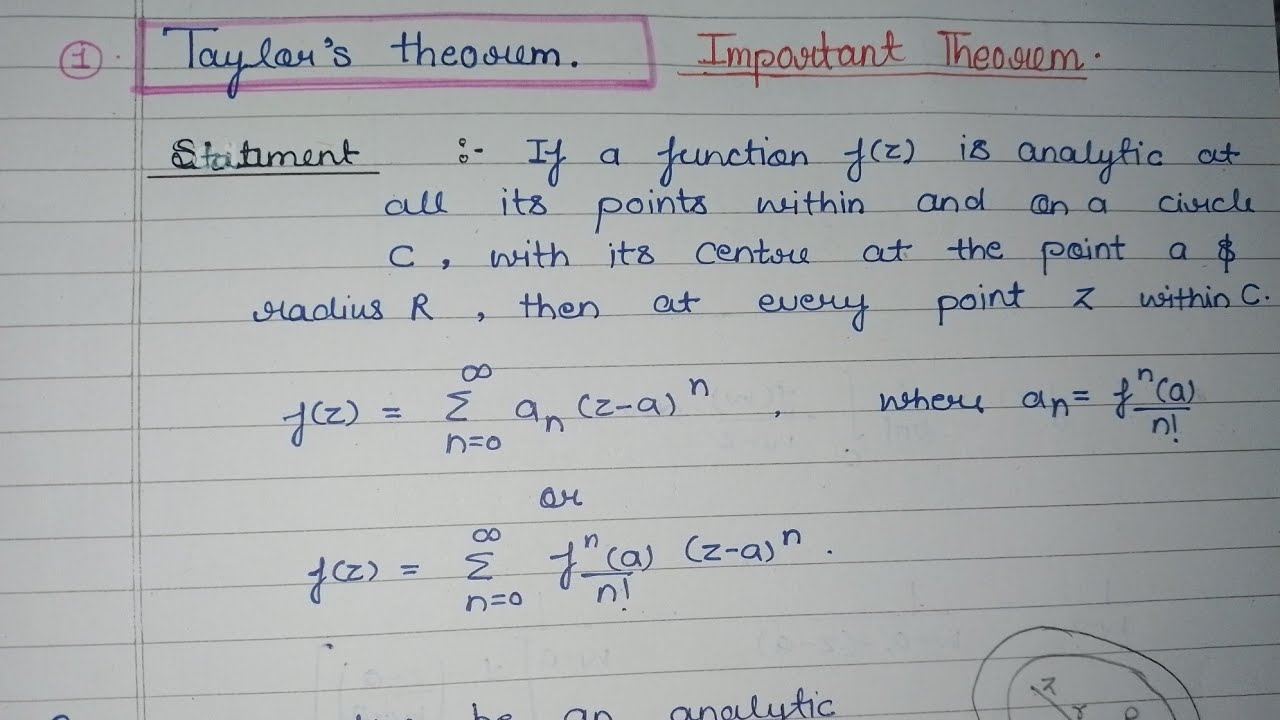 ① . Taylor's theorem. Important Theorem.
Statement :- If a function f(z) is analytic at
all its points within and on a circle
C, with its centre at the point a &
radius R, then at every point z within C.
f(z) = ∞Σn=0 aₙ (z-a)ⁿ, where aₙ = fⁿ(a)/n!
or
f(z) = ∞Σn=0 fⁿ(a)/n! (z-a)ⁿ.
be an analytic
z
r